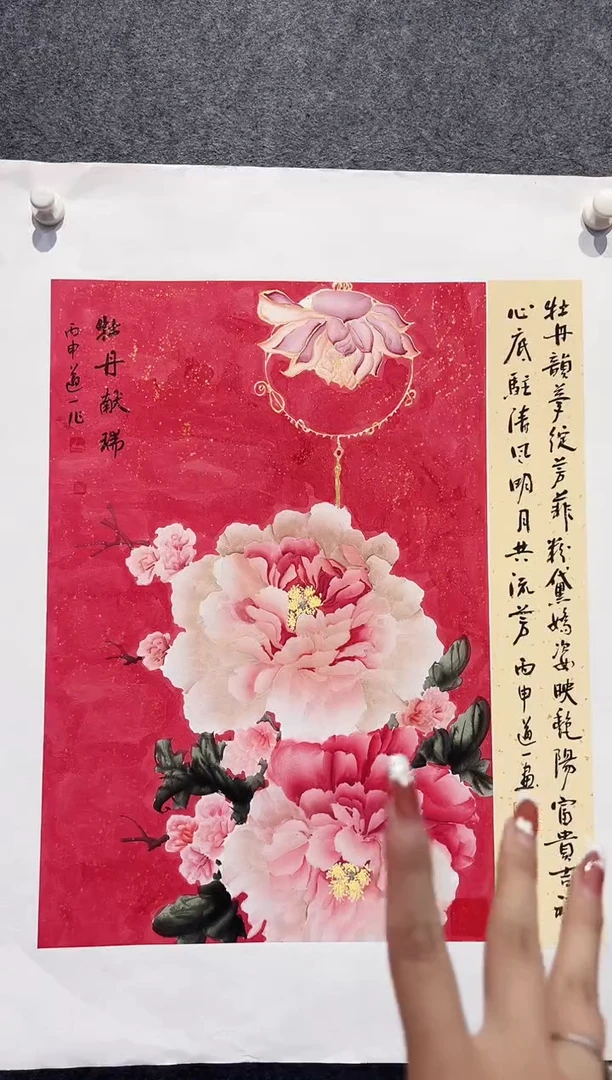 牡丹韻綻芳菲粉黛嬌姿映艳陽富貴吉
心底駐清风明月共流芳 丙申道一畫
牡丹献瑞
丙申道一作